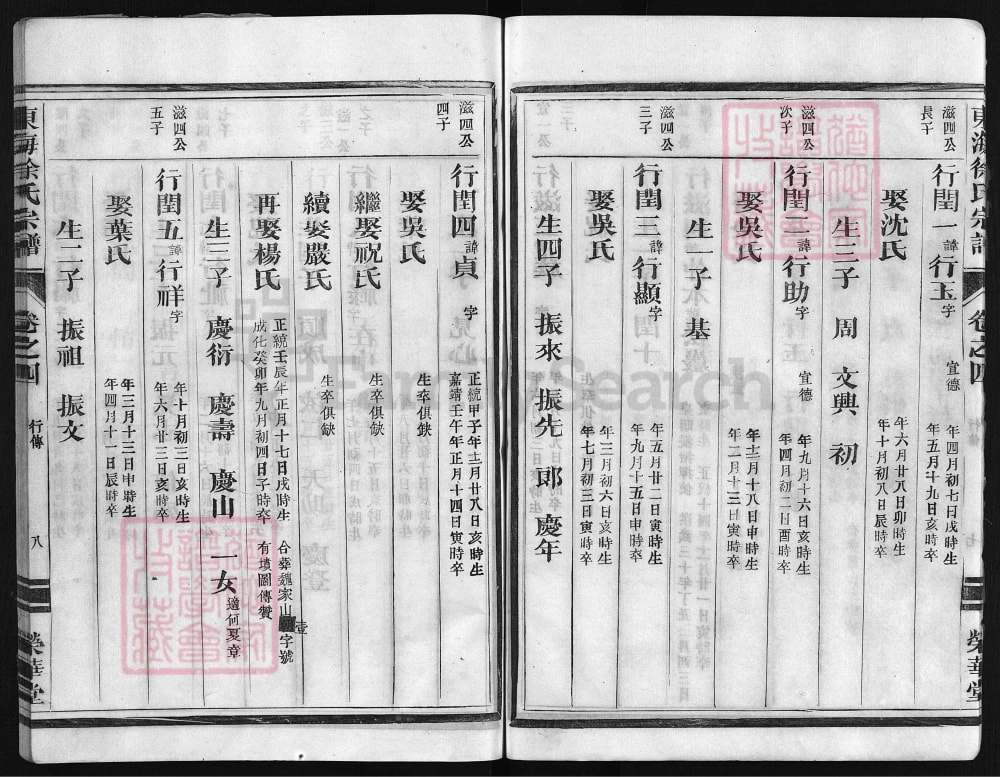 東海徐氏宗譜 卷之四 榮華堂
滋四公長子
行閏一諱行玉字 宣德 年四月初七日戌時生 年五月十九日亥時卒
娶沈氏 年六月廿八日卯時生 年十月初八日辰時卒
生三子 周 文興 初
滋四公次子
行閏二諱行助字 宣德 年九月十六日亥時生 年四月初二日酉時卒
娶吳氏 年十二月十八日申時生 年二月十三日寅時卒
生一子 基
滋四公三子
行閏三諱行顯字 年五月廿二日寅時生 年九月十五日申時卒
娶吳氏 年三月初六日亥時生 年七月初三日寅時卒
生四子 振來 振先 郎 慶年
滋四公四子
行閏四諱貞 字 正統甲子年十二月廿八日亥時生 嘉靖壬午年正月十四日寅時卒
娶吳氏 生卒俱缺
繼娶祝氏 生卒俱缺
續娶嚴氏 生卒俱缺
再娶楊氏 正統壬辰年正月十七日戌時生 成化癸卯年九月初四日子時卒 合葬魏家山 壹字號 有墳圖傳贊
生三子 慶衍 慶壽 慶山 一女 適何夏章
滋四公五子
行閏五諱行祥字 年十月初三日亥時生 年六月廿三日亥時卒
娶葉氏 年三月十三日申時生 年四月十一日辰時卒
生二子 振祖 振文
東海徐氏宗譜 卷之四 行傳 八 榮華堂
FamilySearch